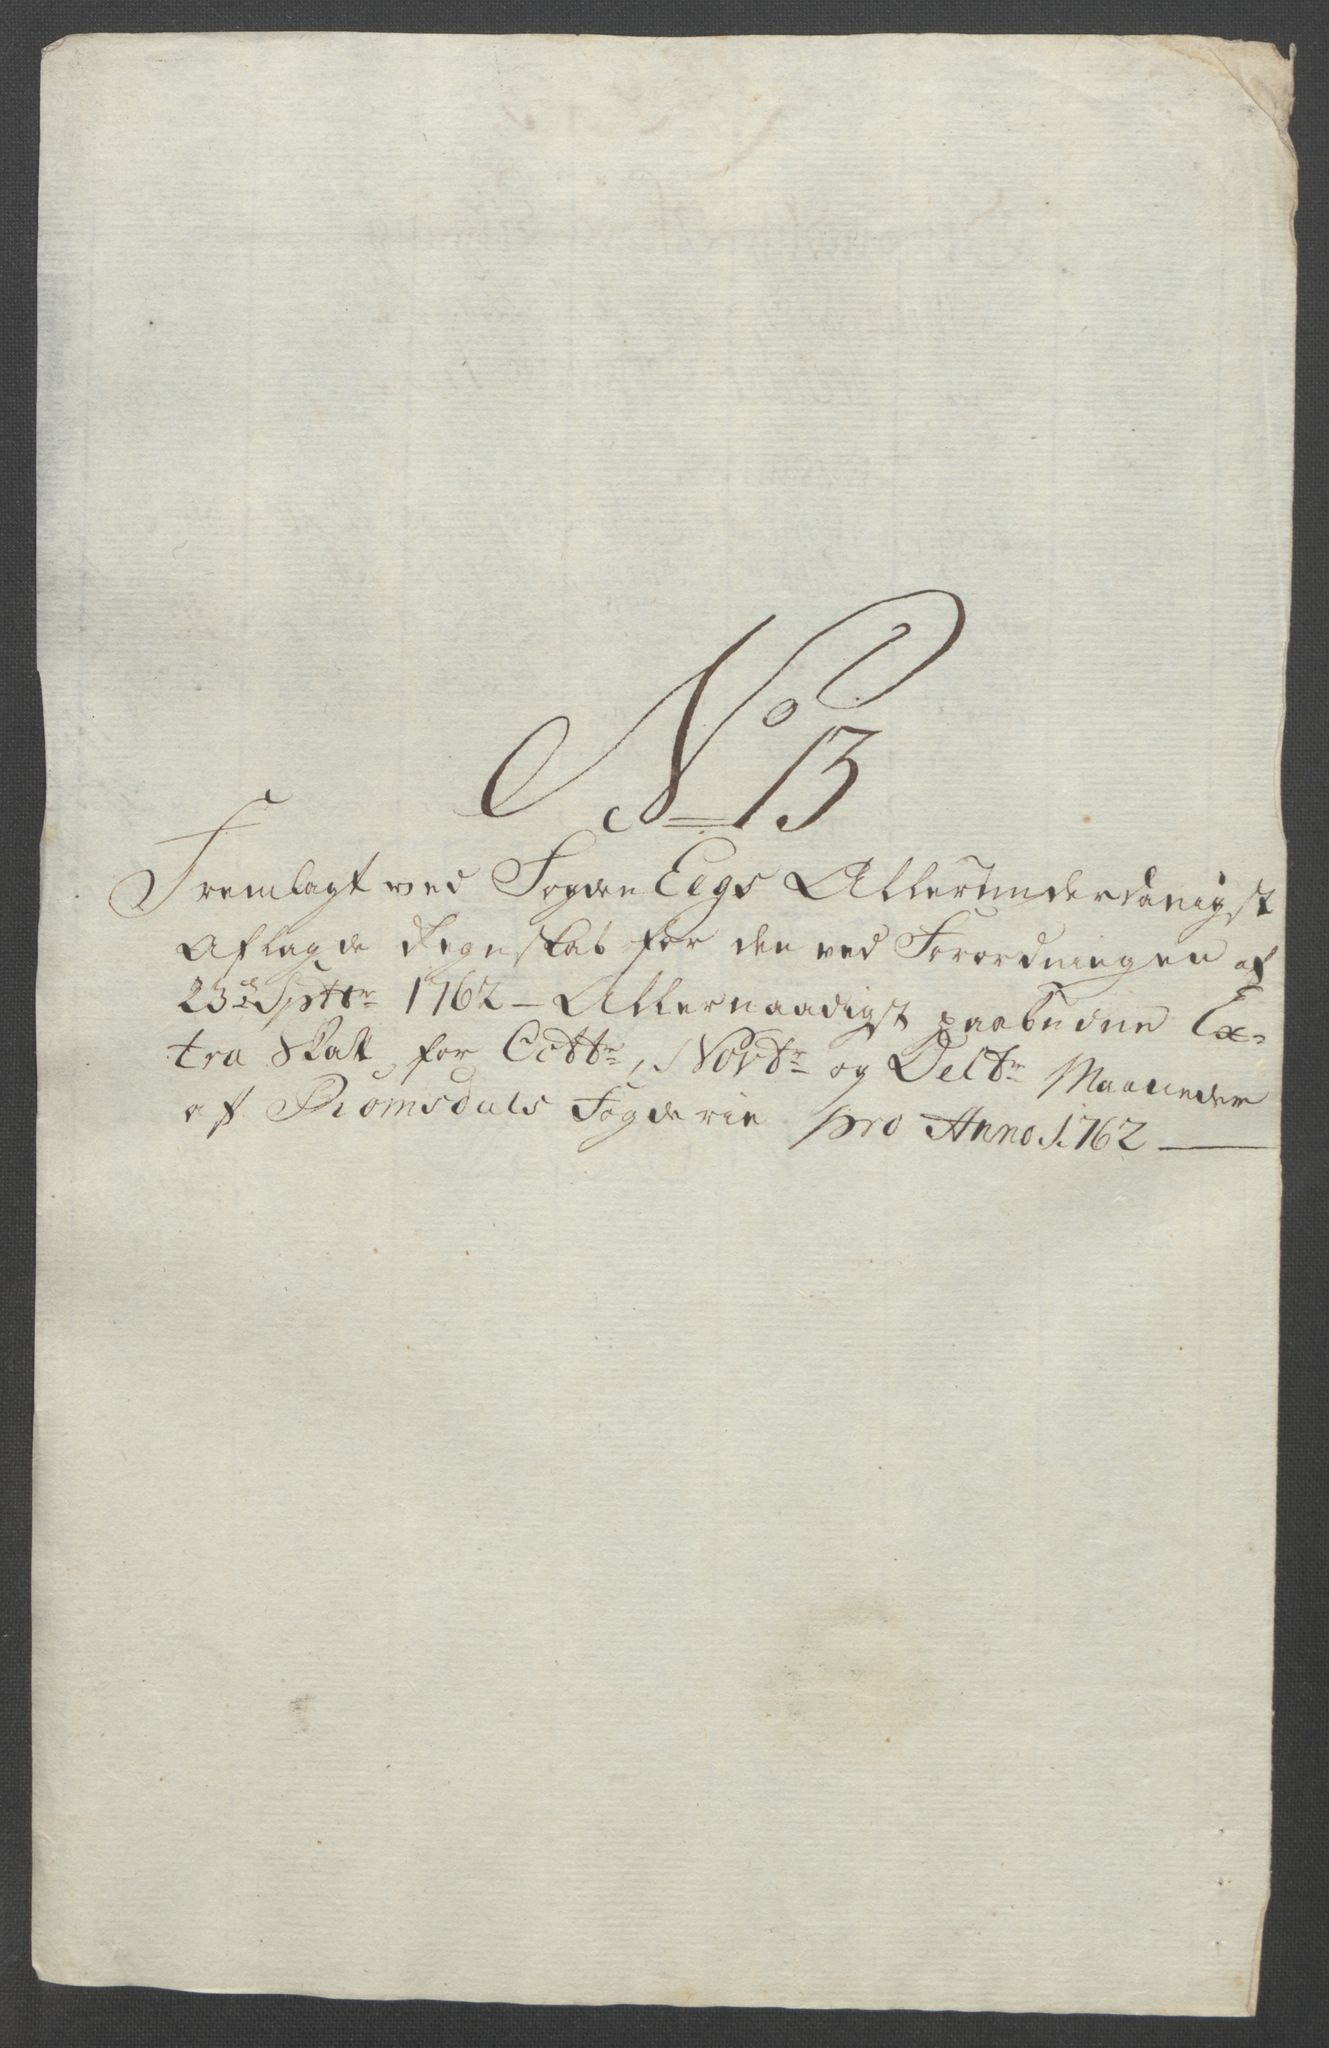 No 13
Fremlagt ved Fogden Eegs Allerunderdanigst
Aflagde Regnskab for den ved Forordningen af
23de Sptbr 1762 - Allernaadigst paabudne Ex=
tra Skatt, for Octbr, Novbr og Decbr Maaneder
af Romsdals Fogderie pro Anno 1762